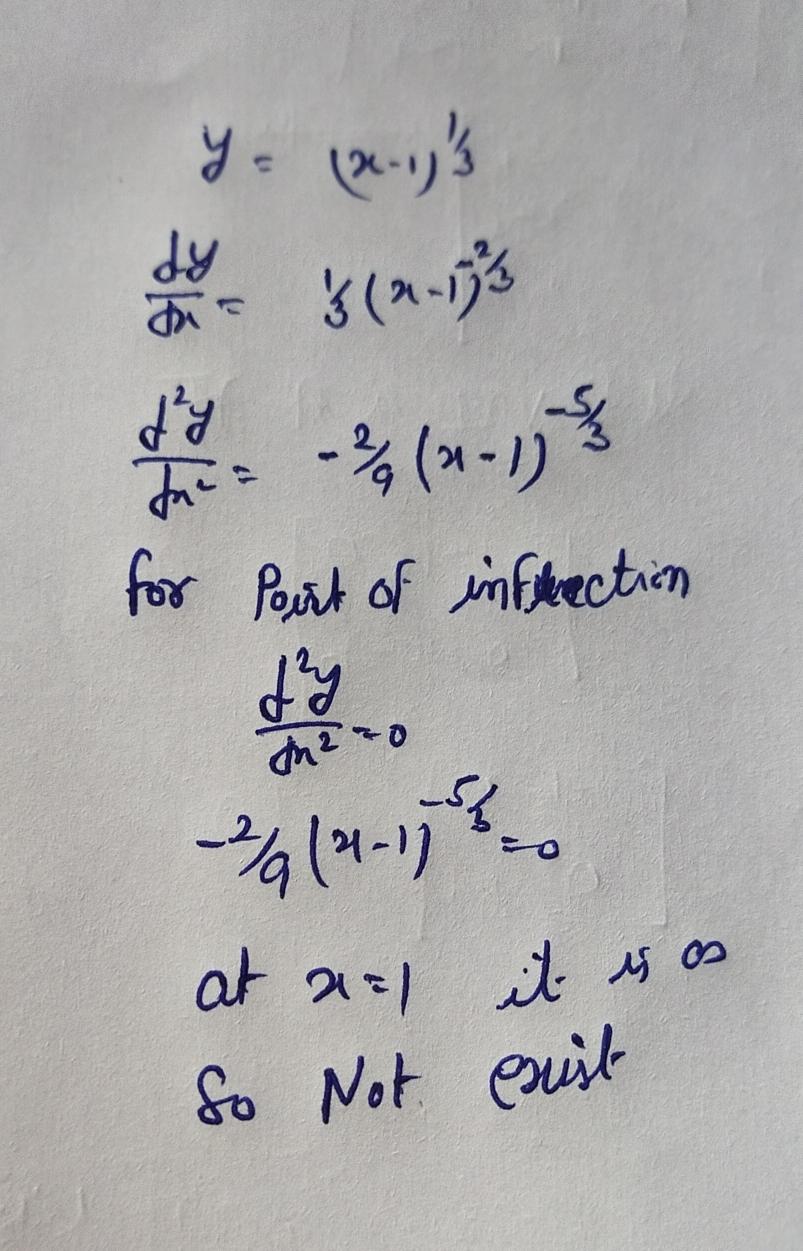 y = (x-1)^1/3
dy/dx = 1/3 (x-1)^-2/3
d²y/dx² = -2/9 (x-1)^-5/3
for Point of inflection
d²y/dx² = 0
-2/9 (x-1)^-5/3 = 0
at x=1 it is ∞
So Not exist